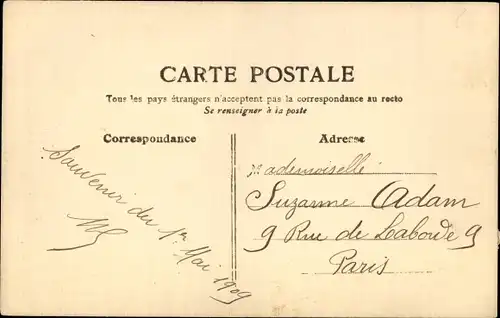 CARTE POSTALE
Tous les pays étrangers n'acceptent pas la correspondance au recto
Se renseigner à la poste
Correspondance
Souvenir du 1er
Mai 1909
Adresse
Mademoiselle
Suzanne Adam
9 Rue de Laborde 9
Paris